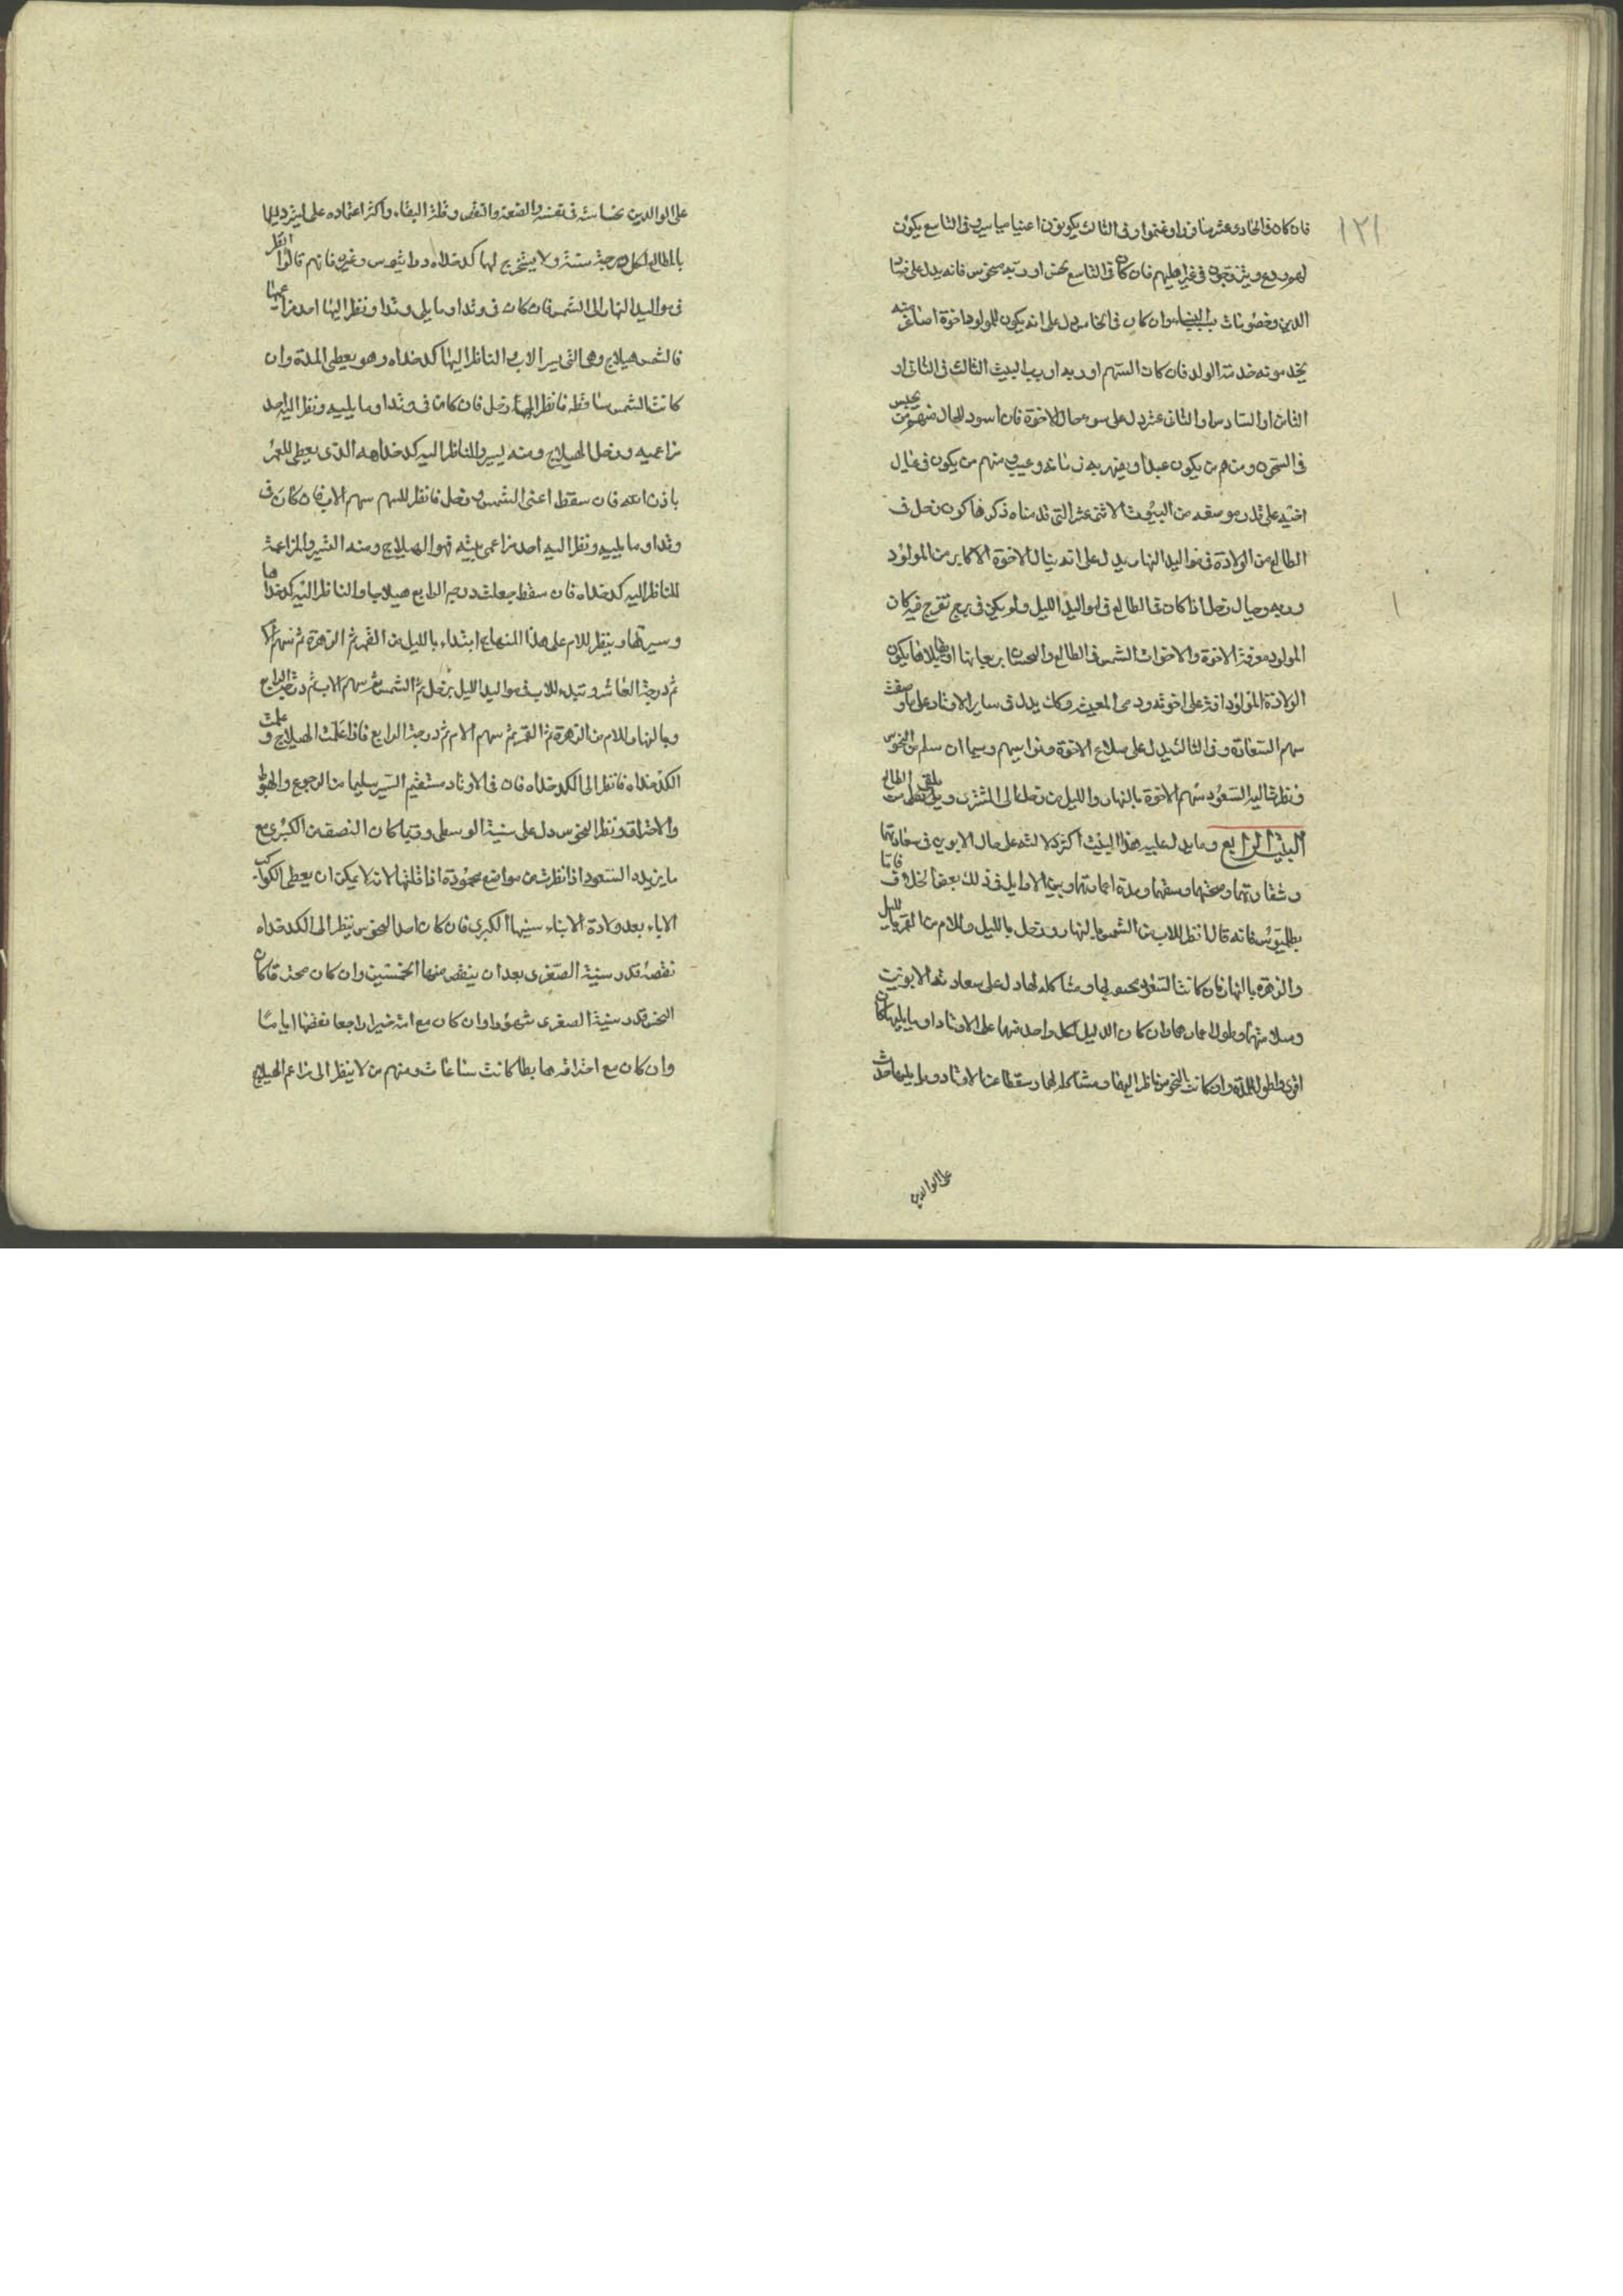 ١٢١
فان كان فى الحادى عشر سافروا وغنموا وفى الثالث يكونون اغنيا مياسير وفى التاسع يكون
لهم ورع ويتزوجون فى غير اهليهم فان كان فى التاسع نحس او ربه منحوس فانه يدل على فساد
الدين وخصومات بسبب النساء وان كان فى الخامس دل على انه يكون للمولود اخوة اصاغر منه
يخدمونه خدمة الولد فان كان السهم او ربه او رب البيت الثالث فى الثانى او
الثامن او السادس او الثانى عشر دل على سوء حال الاخوة فان اسود الحال فمنهم من يحبس
فى السجن ومنهم من يكون عبدا ويضر به زمانه وعيوب منهم من يكون فى
اخيه على قدر موضعه من البيوت الاثنى عشر التى قدمناه ذكرها كون زحل فى
الطالع من الولادة فى مواليد النهار يدل على انه ينال الاخوة الاكابر من المولود
زحل اذا كان فى الطالع فى مواليد الليل ولم يكن فى برج تفرح فيه كان
المولود معرفة الاخوة والاخوات الشمس فى الطالع والنحسان يكون
الولادة المولود افة على اخوته ردى المعيشة وكذلك يدل فى ساير الاوتاد على ما وصفت
سهم السعادة فى الثالث يدل على صلاح الاخوة وتوابعهم وسيما ان سلم من النحوس
ونظرت اليه السعود سهم الاخوة بالنهار والليل من زحل الى المشترى ويلقى من الطالع
البيت الرابع وما يدل عليه هذا البيت اكثر دلالته على حال الابوين فى سعادتهما
وشقاوتهما وصحتهما وسقمهما ومدة اعمارهما وبين الاوايل فى ذلك بعض الخلاف فاما
بطلميوس فانه قال انظر للاب من الشمس بالنهار وزحل بالليل وللام من القمر بالليل
والزهرة بالنهار فان كانت السعود لهما ومشاكلة لهما دل على سعادة الابوين
وسلامتهما وطول اعمارهما وان كان الدليل لكل واحد منهما على الاوتاد او ما يليها كان
اقوى واطول للمدة وان كانت النحوس ناظرة اليهما ومشاكلة لهما وسقطا عن الاوتاد وما يليها دلت
على الوالدين
على الوالدين بخساسة فى نفسه والضعة والنقص وقلة البقاء واكثر اعتماده على تسيير دليلهما
بالمطالع لكل درجة سنة ولا يستخرج لهما كدخداه ودراثيوس وغيره فانهم قالوا انظر
فى مواليد النهار الى الشمس فان كان فى وتد او ما يلى وتدا ونظر اليها احد مزاعميها
فالشمس هيلاج وهى التى يسير الاب والناظر اليها كدخداه وهو يعطى المدة وان
كانت الشمس ساقطه فانظر الى زحل فان كان فى وتد او ما يليه ونظر اليه احد
مزاعميه فزحل الهيلاج ومنه يسير والناظر اليه كدخداهه الذى يعطى العمر
باذن الله فان سقط اعنى الشمس وزحل فانظر للسهم سهم الاب فان كان فى
وتد او ما يليه ونظر اليه احد مزاعمى بيته فهو الهيلاج ومنه التسيير والمزاعمة
للناظر اليه كدخداه فان سقط جعلت درجه الرابع هيلاجا والناظر اليه كدخداها
وسيرتها وينظر للام على هذا المنهاج ابتداء بالليل من القمر ثم الزهرة ثم سهم الام
ثم درجة العاشر وتبدء للاب فى مواليد الليل بزحل ثم الشمس ثم سهم الاب ثم درجة الرابع
وبالنهار للام من الزهرة ثم القمر ثم سهم الام ثم درجة الرابع فاذا علمت الهيلاج و
الكدخداه فانظر الى الكدخداه فان فى الاوتاد مستقيم السير سليما من الرجوع والهبوط
والاحتراق ونظر النحوس دل على سنيه الوسطى وربما كان النصف من الكبرى مع
ما يزيده السعود اذا نظرت من مواضع محمودة اذا قلتها لانه لا يمكن ان يعطى الكواكب
الاباء بعد ولادة الابناء سنيها الكبرى فان كان احد النحوس ينظر الى الكدخداه
نقصه قدر سنيه الصغرى بعد ان ينقص منها الخمسين وان كان محترقا كان
النحس قدر سنيه الصغرى شهورا وان كان مع راجعا نقصها اياما
وان كان مع احتراقه هابطا كانت ساعات ومنهم من لا ينظر الى مزاعم الهيلاج